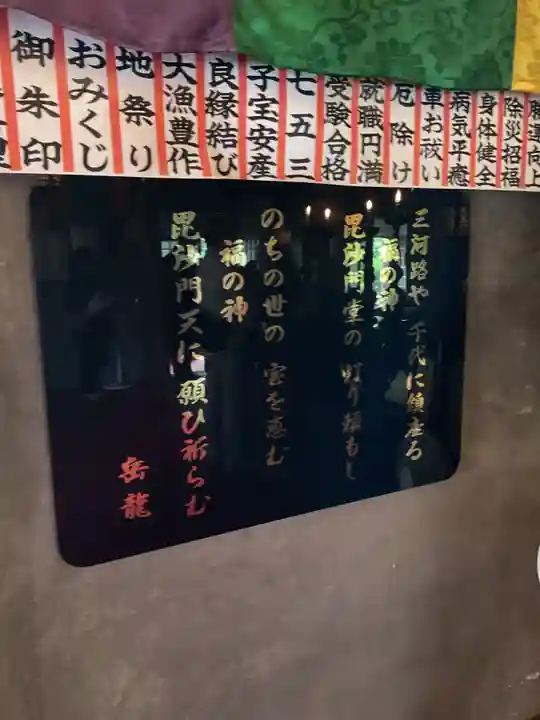 勝運向上
除災招福
身体健全
病気平癒
車お祓い
厄除け
就職円満
受験合格
七五三
子宝安産
良縁結び
大漁豊作
地祭り
おみくじ
御朱印
三河路や 千代に鎮座る
福の神
毘沙門堂の 灯り頼もし
のちの世の 宝を恵む
福の神
毘沙門天に 願ひ祈らむ
岳龍